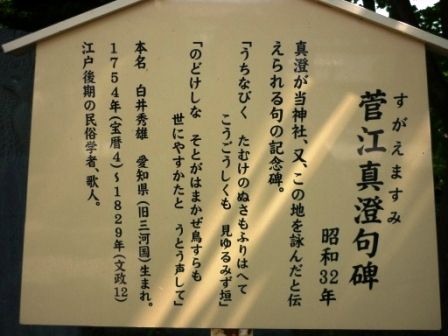 すがえますみ
菅江真澄句碑
昭和32年
真澄が当神社、又、この地を詠んだと伝
えられる句の記念碑。
「うちなびく たむけのぬさもふりはへて
こうごうしくも 見ゆるみず垣」
「のどけしな そとがはまかぜ鳥すらも
世にやすかたと うとう声して」
本名 白井秀雄 愛知県(旧三河国)生まれ。
1754年(宝暦4)~1829年(文政12)
江戸後期の民俗学者、歌人。